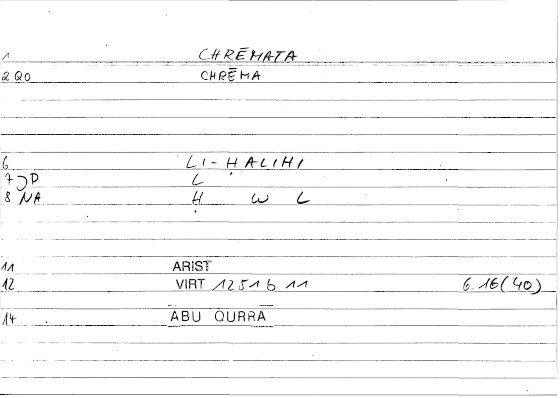 1 CHRĒMATA
2 QO CHRĒMA
6 LI-ḤALIHI
7 JP L
8 NA Ḥ W L
11 ARIST
12 VIRT 1251 b 11 6.16(40)
14 ABU QURRA